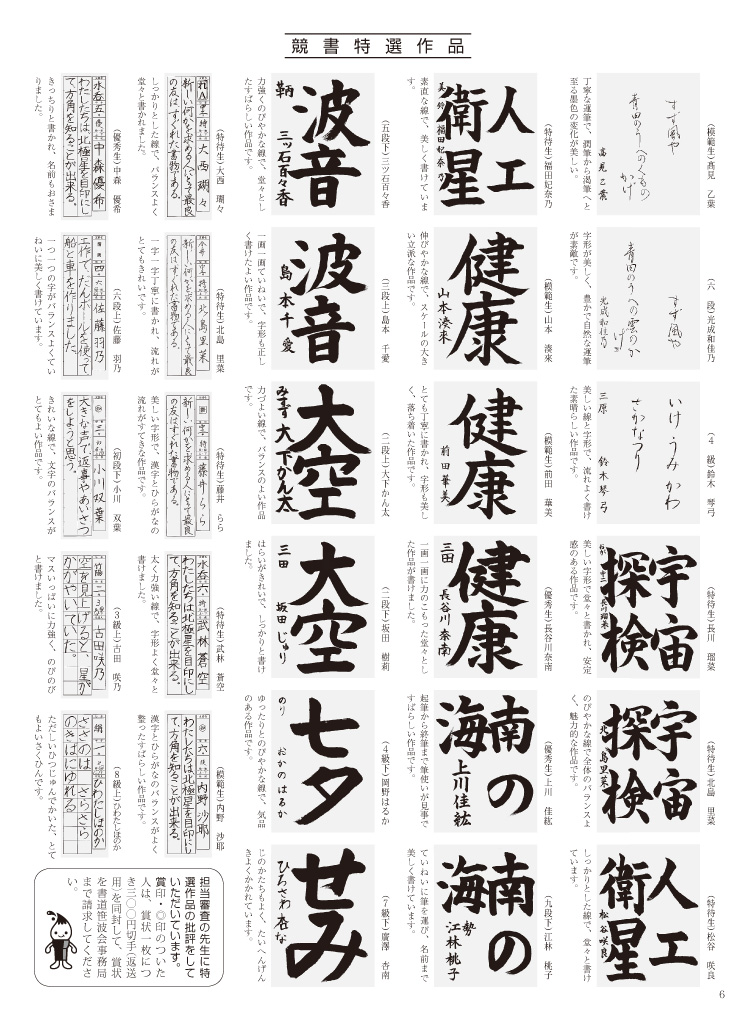 競書特選作品
（模範生）髙見　乙葉
すず風や
青田のうへのくもの
かげ
高見乙葉
丁寧な運筆で、潤筆から渇筆へと
至る墨色の変化が美しい。
（六　段）光成和佳乃
すず風や
青田のうへの雲のか
げ
光成和佳乃
字形が美しく、豊かで自然な運筆
が素敵です。
（４　級）鈴木　琴弓
いけ・うみかわ
さかなつり
三原　鈴木琴弓
美しい線と字形で、流れよく書け
た素晴らしい作品です。
（特待生）長川　瑠菜
宇宙
探検
美しい字形で堂々と書かれ、安定
感のある作品です。
（特待生）北島　里菜
宇宙
探検
北島里菜
のびやかな線で全体のバランスよ
く、魅力的な作品です。
（特待生）松谷　咲良
人工
衛星
松谷咲良
しっかりとした線で、堂々と書け
ています。
（特待生）福田妃奈乃
人工
衛星
福田妃奈乃
素直な線で、美しく書けていま
す。
（模範生）山本　湊來
健康
山本湊來
伸びやかな線で、スケールの大き
い立派な作品です。
（模範生）前田　華美
健康
前田華美
とても丁寧に書かれ、字形も美し
く、落ち着いた作品です。
（優秀生）長谷川奈南
健康
三田　長谷川奈南
一画一画に力のこもった堂々とし
た作品が書けました。
（優秀生）上川　佳紘
南の
海
上川佳紘
起筆から終筆まで筆使いが見事で
すばらしい作品です。
（九段下）江林　桃子
南の
海
江林桃子
ていねいに筆を運び、名前まで
美しく書けています。
（五段下）三ツ石百々香
波音
鞆　三ツ石百々香
力強くのびやかな線で、堂々とし
たすばらしい作品です。
（三段上）島本　千愛
波音
島本千愛
一画一画ていねいで、字形も正し
く書けたよい作品です。
（二段上）大下かん太
大空
みます　大下かん太
力づよい線で、バランスのよい作品
です。
（二段下）坂田　樹莉
大空
三田　坂田じゅり
はらいがきれいで、しっかりと書け
ました。
（４級下）岡野はるか
七夕
のり　おかのはるか
ゆったりとのびやかな線で、気品
のある作品です。
（７級下）廣澤　杏南
せみ
ひろさわ杏な
じのかたちもよく、たいへんげん
きよくかかれています。
（特待生）大西　瑚々
大西瑚々
新しい何かを求める人にとって最良
の友はすぐれた書物である。
しっかりとした線で、バランスよく
堂々と書かれました。
（特待生）北島　里菜
北島里菜
新しい何かを求める人にとって最良
の友はすぐれた書物である。
一字一字丁寧に書かれ、流れが
とてもきれいです。
（特待生）藤井　らら
藤井らら
新しい何かを求める人にとって最良
の友はすぐれた書物である。
美しい字形で、漢字とひらがなの
流れがすてきな作品です。
（特待生）武林　蒼空
水呑　六　武林蒼空
わたしたちは北極星を目印にし
て方角を知ることが出来る。
太く力強い線で、字形よく堂々と
書けました。
（模範生）内野　沙耶
六　内野沙耶
わたしたちは北極星を目印にし
て方角を知ることが出来る。
漢字とひらがなのバランスがよく
整ったすばらしい作品です。
（優秀生）中森　優希
水呑　五　中森優希
わたしたちは、北極星を目印にし
て方角を知ることが出来る。
きっちりと書かれ、名前もおさま
りました。
（六段上）佐藤　羽乃
四　佐藤羽乃
工作で、だんボールを使って
船と車を作りました。
一つ一つの字がバランスよくてい
ねいに美しく書けています。
（初段下）小川　双葉
小川双葉
大きな声で、返事やあいさつ
をしようと思う。
きれいな線で、文字のバランスが
とてもよい作品です。
（３級上）古田　咲乃
竹陽　古田咲乃
空を見上げると、星が
かがやいていた。
マスいっぱいに力強く、のびのび
書けました。
（８級上）ひわたしほのか
ひわたしほのか
ささのは　さらさら
のきばにゆれる
ただしいひつじゅんでかいた、とて
もよいさくひんです。
担当審査の先生に特
選作品の批評をして
いただいています。
賞印・◎印のついた
人は、賞状一枚につ
き三〇〇円切手（返送
用）を同封して、賞状
を書道笹波会事務局
まで請求してくださ
い。
6